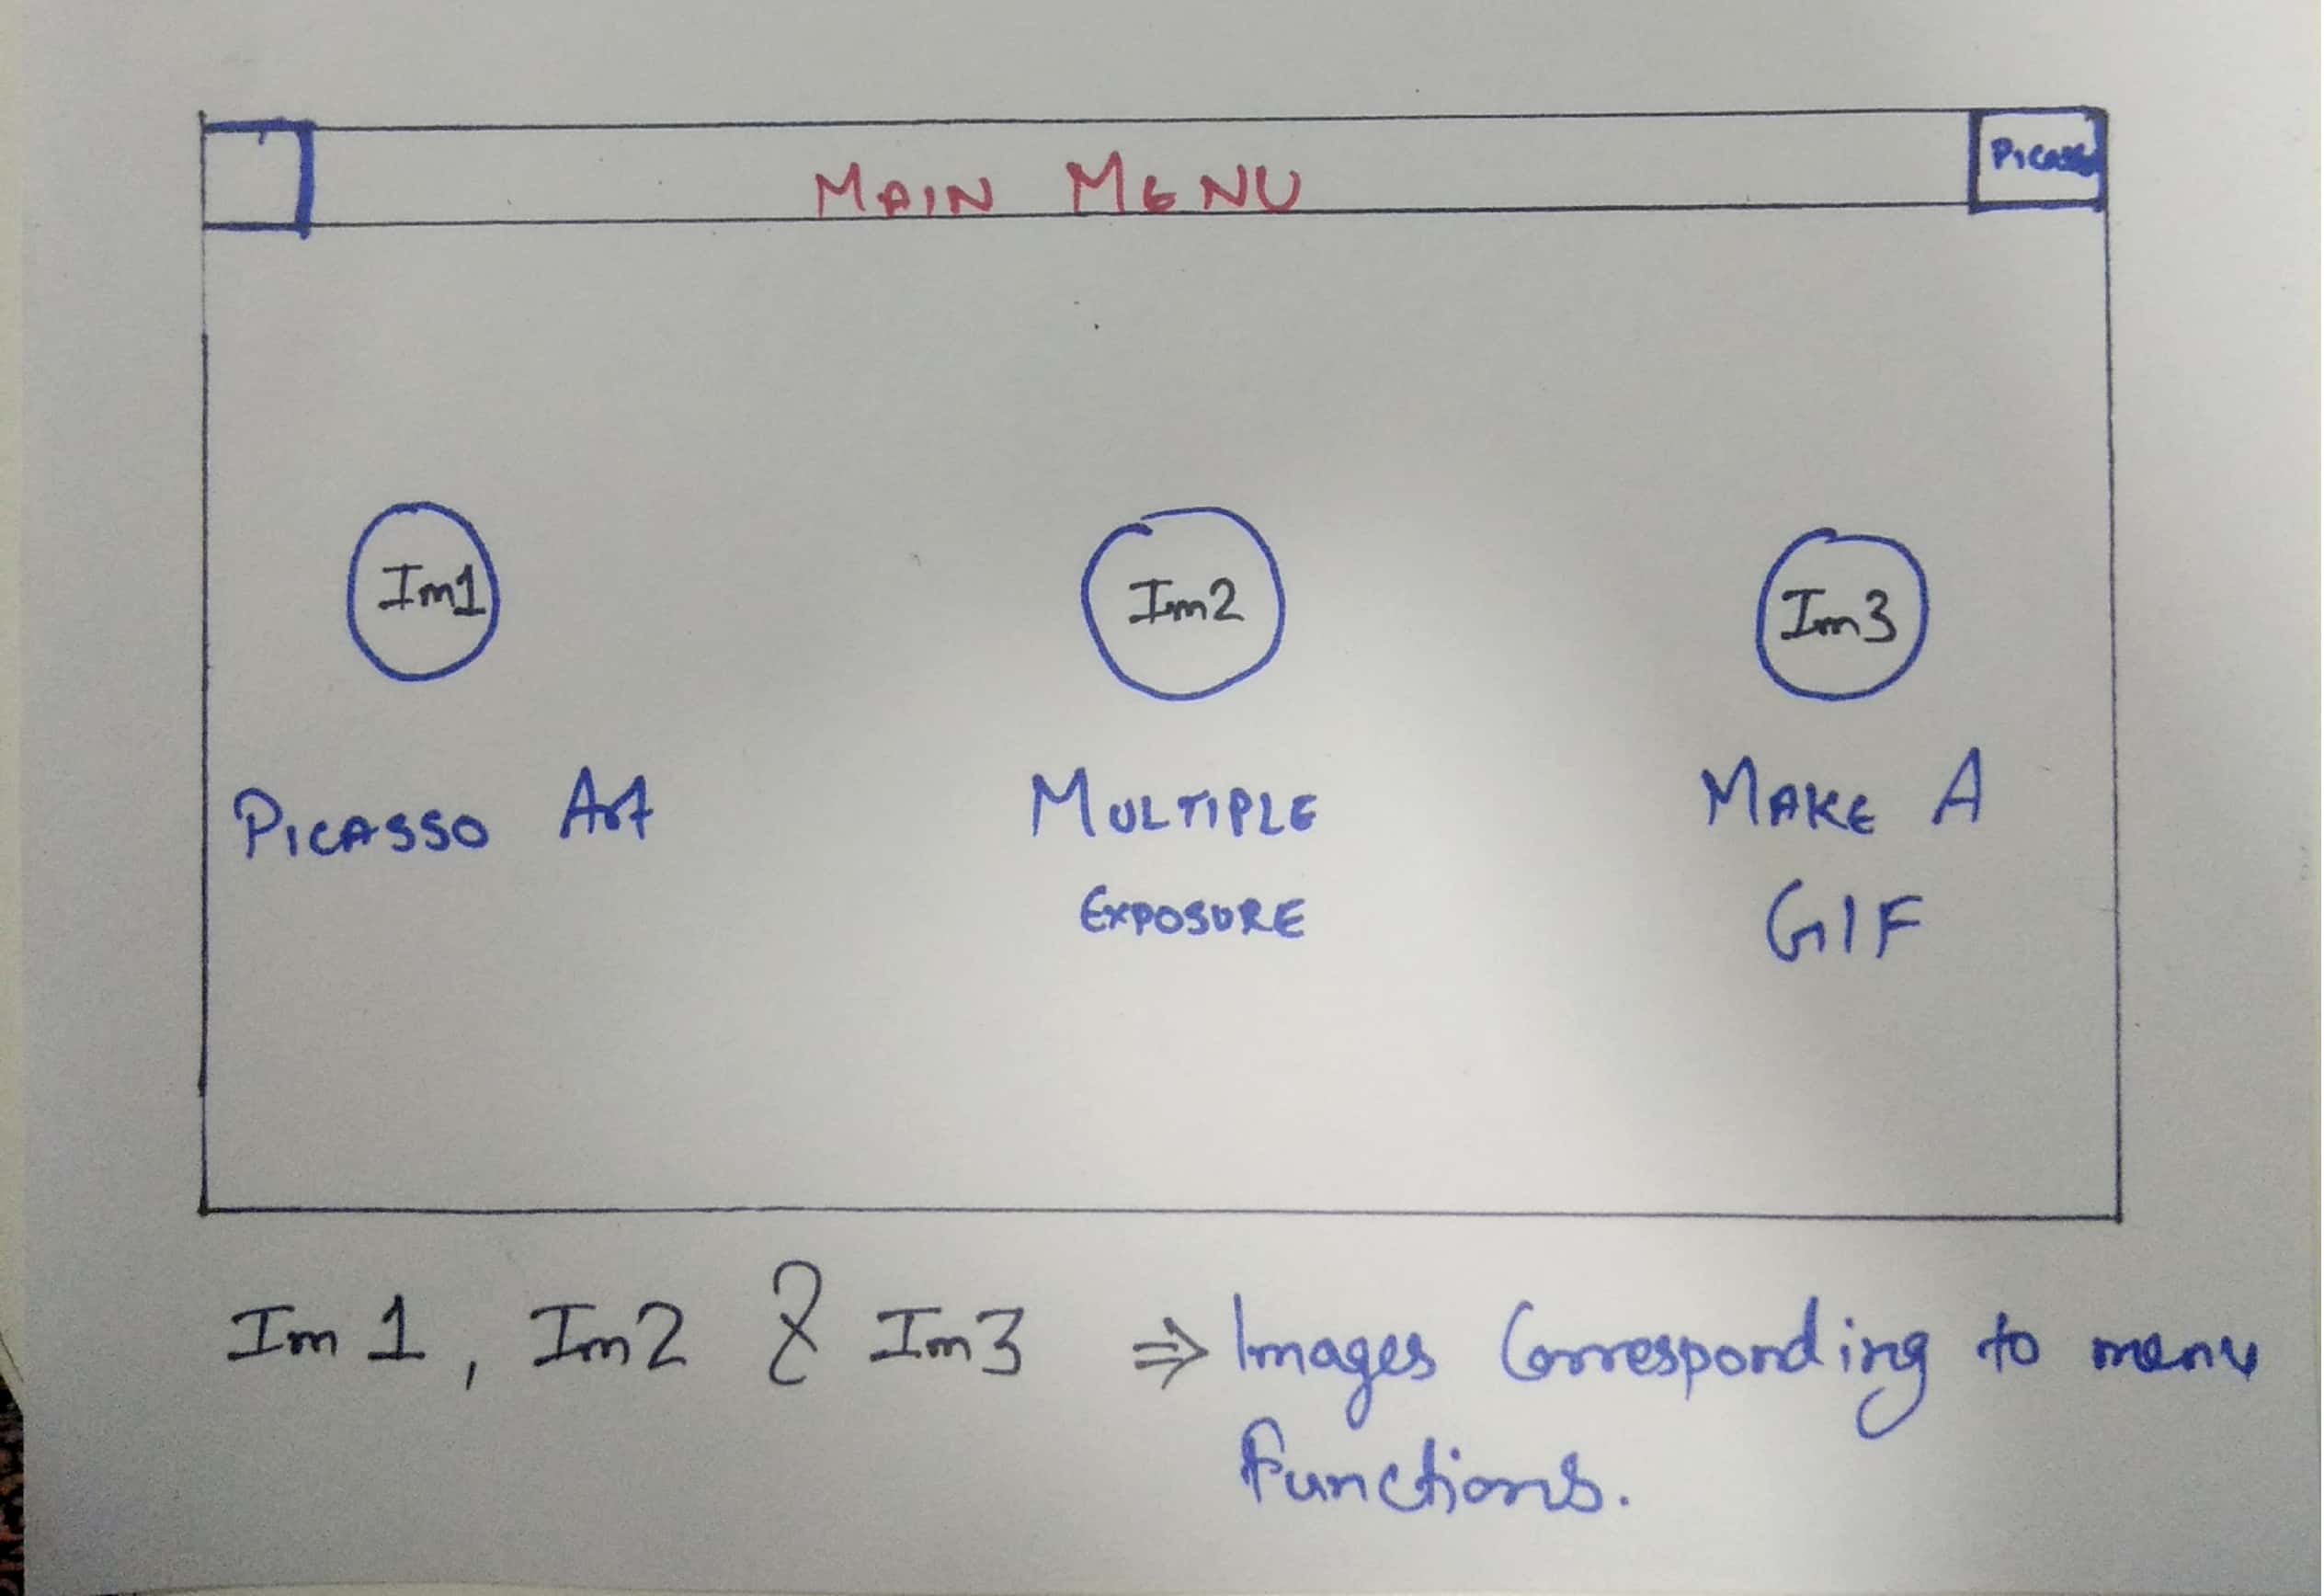 MAIN MENU
Picasso
Im1
Im2
Im3
PICASSO Art
MULTIPLE
EXPOSURE
MAKE A
GIF
Im 1, Im2 & Im3 ⇒ Images Corresponding to menu
Functions.